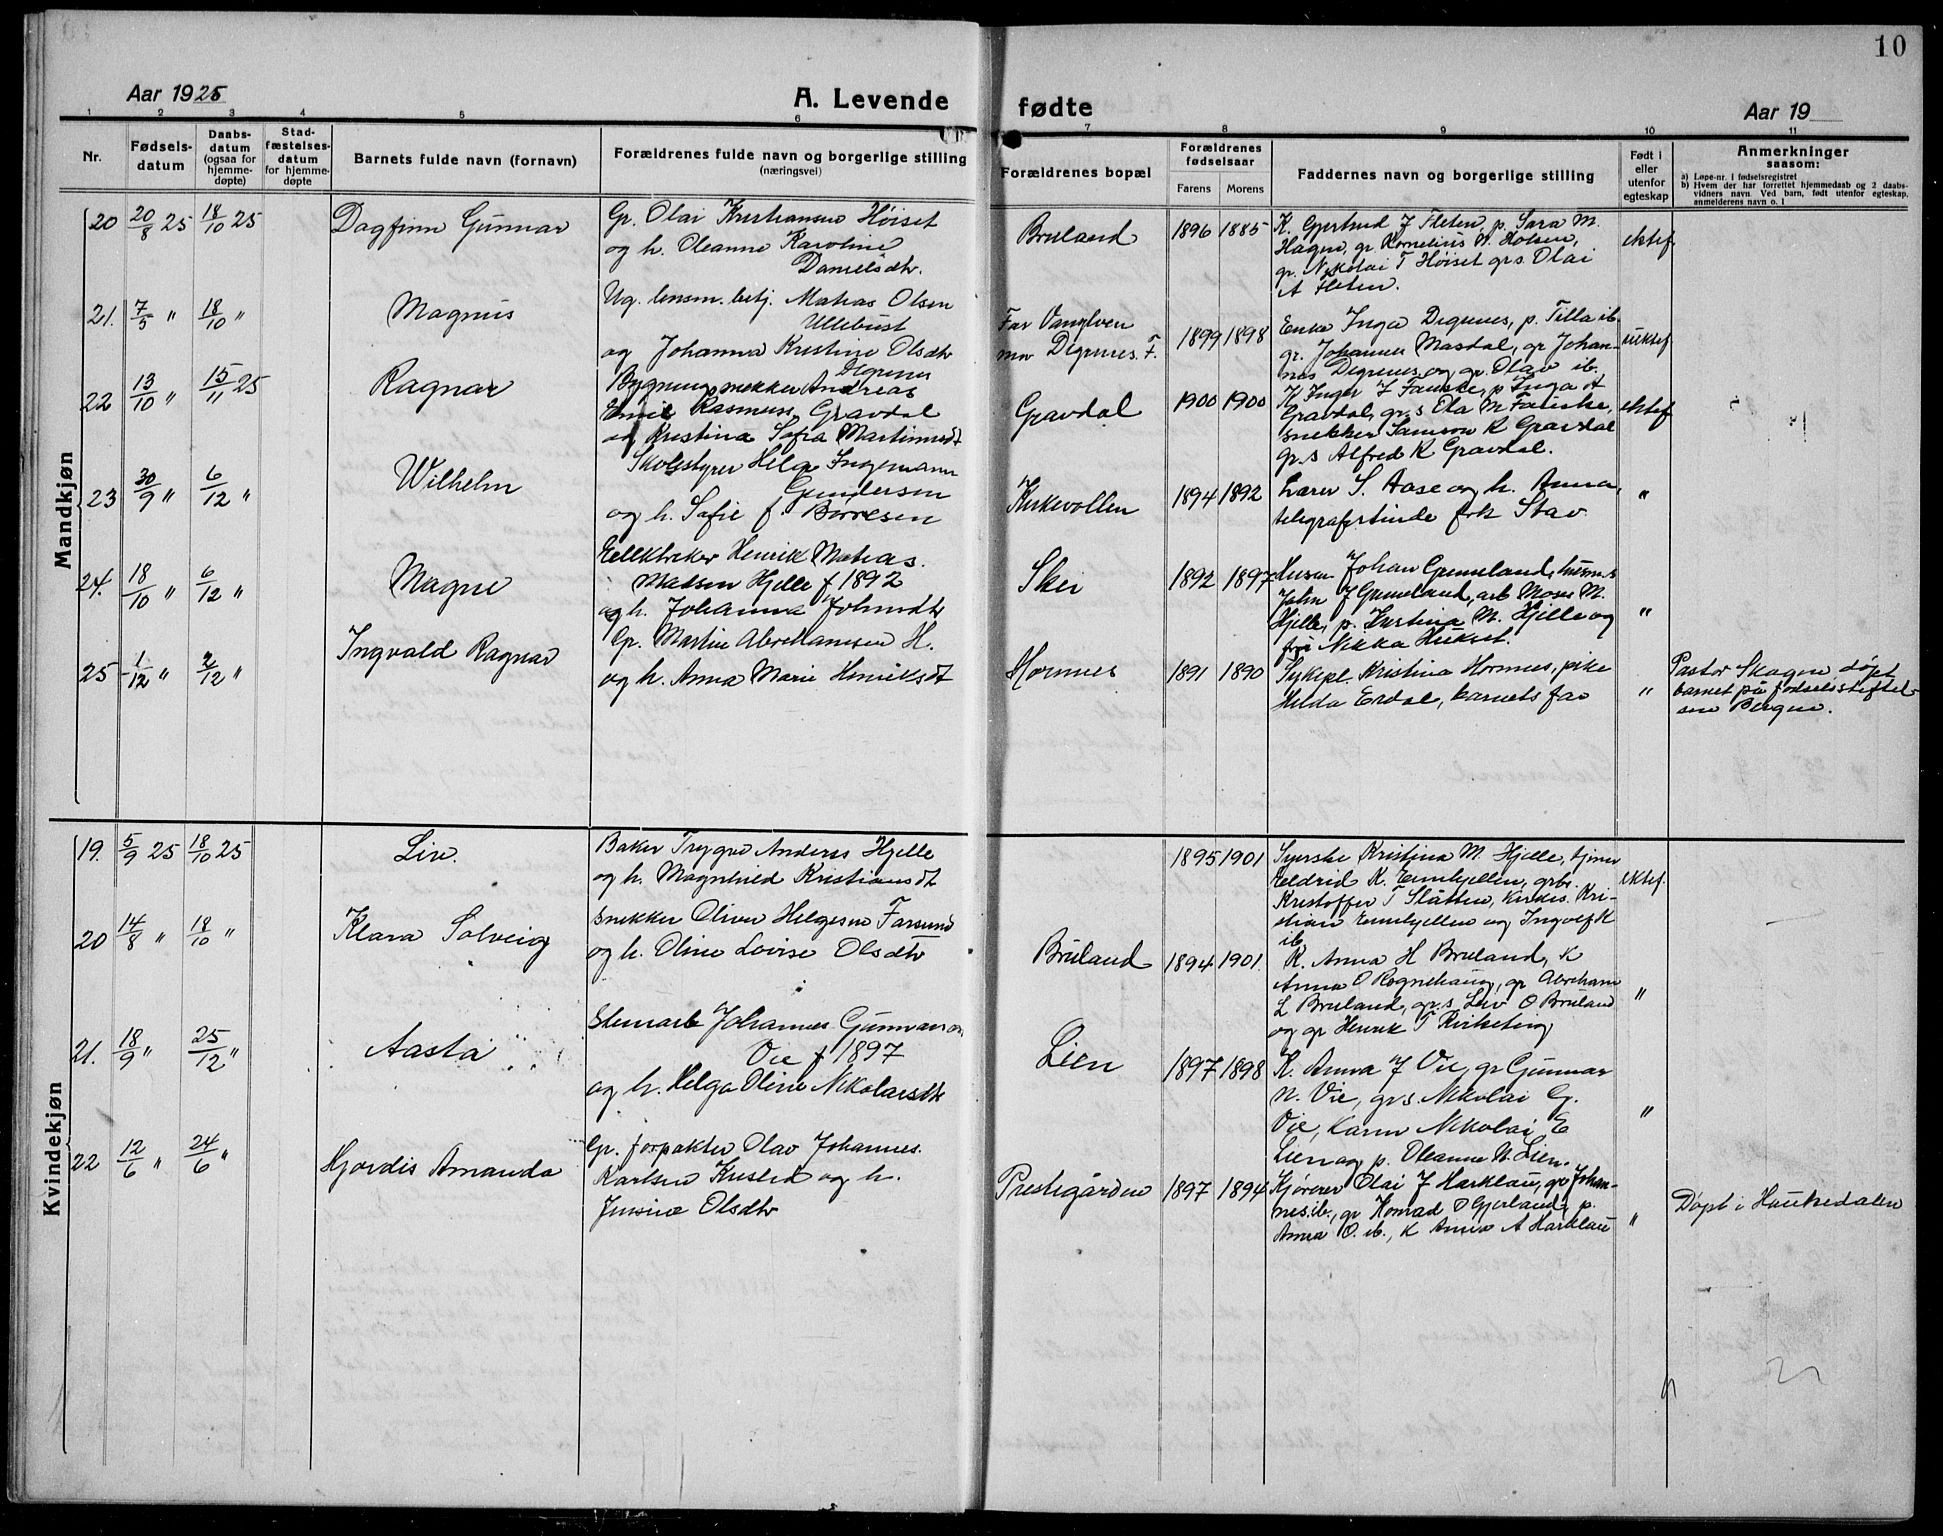 10
Aar 1925
A. Levende fødte
Aar 19
1 2 3 4 5 6 7 8 9 10 11
Nr.
Fødsels-
datum
Daabs-
datum
(ogsaa for
hjemme-
døpte)
Stad-
fæstelses-
datum
for hjemme-
døpte
Barnets fulde navn (fornavn)
Forældrenes fulde navn og borgerlige stilling
(næringsvei)
Forældrenes bopæl
Forældrenes
fødselsaar
Farens Morens
Faddernes navn og borgerlige stilling
Født i
eller
utenfor
egteskap
Anmerkninger
saasom:
a) Løpe-nr. i fødselsregistret
b) Hvem der har forrettet hjemmedaab og 2 daabs-
vidners navn. Ved barn, født utenfor egteskap,
anmelderens navn o. l
Mandkjøn
20 20/8 25 18/10 25 Dagfinn Gunnar
Gr. Olai Kristiansen Høiset
og h. Oleanne Karoline
Danielsdtr.
Bruland 1896 1885
K. Gjertrud J Fleten, p. Sara M.
Hagen, gr Kornelius A. Holsen,
gr. Nikolai T Høiset grs Olai
A Fleten.
ektef
21. 7/5 " 18/10 " Magnus
Ug. lensm. betj. Matias Olsen
Ullebust
og Johanna Kristine Olsdtr
Degrenes
Far Vanglven
mor Digrenes. F.
1899 1898
Enke Inga Digrenes, p. Tilla ib.
gr. Johannes Masdal, gr Johan-
nes Digrenes og gr. Olav ib.
uektef
22 13/10 " 15/11 25 Ragnar
Bygningssnekker Andreas
Emil Rasmusen Gravdal
og Kristina Sofia Martinusdt
Gravdal 1900 1900
K Inger J Fauske, p Inga A
Gravdal, gr.s Ola M Fauske,
snekker Samson R Gravdal
gr.s Alfred R Gravdal.
ektef
23 30/9 " 6/12 " Wilhelm
Skolestyrer Helge Ingemann
Gundersen
og h. Sofie f. Borresen
Kirkevollen 1894 1892
Lærer S. Aase og h. Anna,
telegrafistinde frk Stav.
"
24. 18/10 " 6/12 " Magne
Henrik Matias
Madsen Hjelle f 1892
og h. Johanna Johnsdtr
Skei 1892 1897
Johan Grimeland,
John J Grimeland, arb Moses M.
Hjelle, p. Kristina M. Hjelle og
"
25 1/12 " 2/12 " Ingvald Ragnar
Gr. Martin Abrahamsen H.
og h. Anna Marie Henriksdt
Hornnes 1891 1890
Sykepl Kristina Hornnes, pike
Helda Erdal, barnets far
"
Pastor Skagen døpt
barnet på fødselsstiftel-
sen Bergen.
Kvindekjøn
19. 5/9 25 18/10 25 Liv.
Baker Trygve Anders Hjelle
og h. Magnhild Kristiansdt
1895 1901
Syerske Kristina M. Hjelle, tjener
Eldrid K. Einehjellen, grbr.
Kristoffer T Slåtten, kirkes. Kri-
stian Einehjellen og Ingolf K
ib.
ektef.
20 14/8 " 18/10 " Klara Solveig
Snekker Oliver Helgesen Farsund
og h. Oline Lovise Olsdtr
Bruland 1894 1901.
K. Anna H Bruland, K
Anna O Rognehaug, gr Abraham
L Bruland, gr.s Leiv O Bruland
og gr Henrik T
"
21. 18/9 " 25/12 " Aasta
Stenarb Johannes Gunnarson
Vie f 1897
og h. Helga Oline Nikolaisdtr
Lien 1897 1898
K. Anna J Vie, gr Gunnar
N. Vie, gr.s. Nikolai G.
Vie, Nikolai E
Lien og p. Oleanne N. Lien.
"
22 12/6 " 24/6 " Hjordis Amanda
Gr. forpakter Olav Johannes
Karlsen Kusled og h.
Jensine Olsdtr
Prestegården 1897 1894
Kjører Olai J Harklau, gr Johan-
nes ib., gr Konrad O Gjerland, p.
Anna O. ib., K Anna A Harklau
"
Døpt i Haukedalen